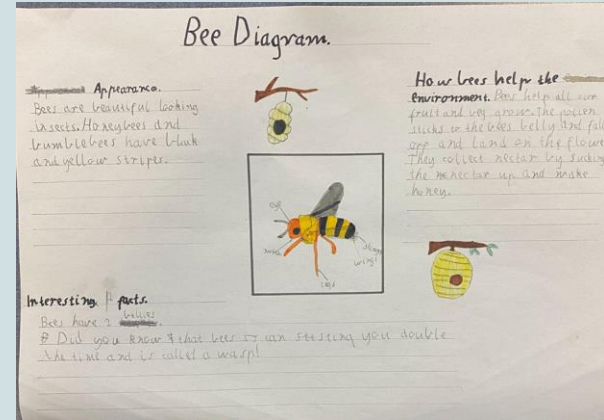 Bee Diagram.
Appearance.
Bees are beautiful looking
insects. Honeybees and
bumblebees have black
and yellow stripes.
How bees help the
environment. Bees help all our
fruit and veg grow. The pollen
sticks to the bees belly and falls
off and land on the flower
They collect nectar by sucking
the nectar up and make
honey.
eye
legs
wings
Interesting facts.
Bees have 2 bellies.
Did you know that bees can sting you double
the time and is called a wasp!